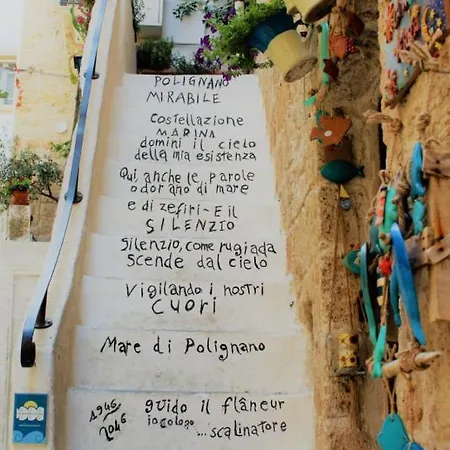 POLIGNANO
MIRABILE
Costellazione
MARINA
domini il cielo
della mia esistenza
Qui anche le parole
odorano di mare
e di zefiri - E il
SILENZIO
Silenzio, come rugiada
scende dal cielo
Vigilando i nostri
CUORI
Mare di Polignano
1946
2046
guido il flâneur
iocologo
...scalinatore